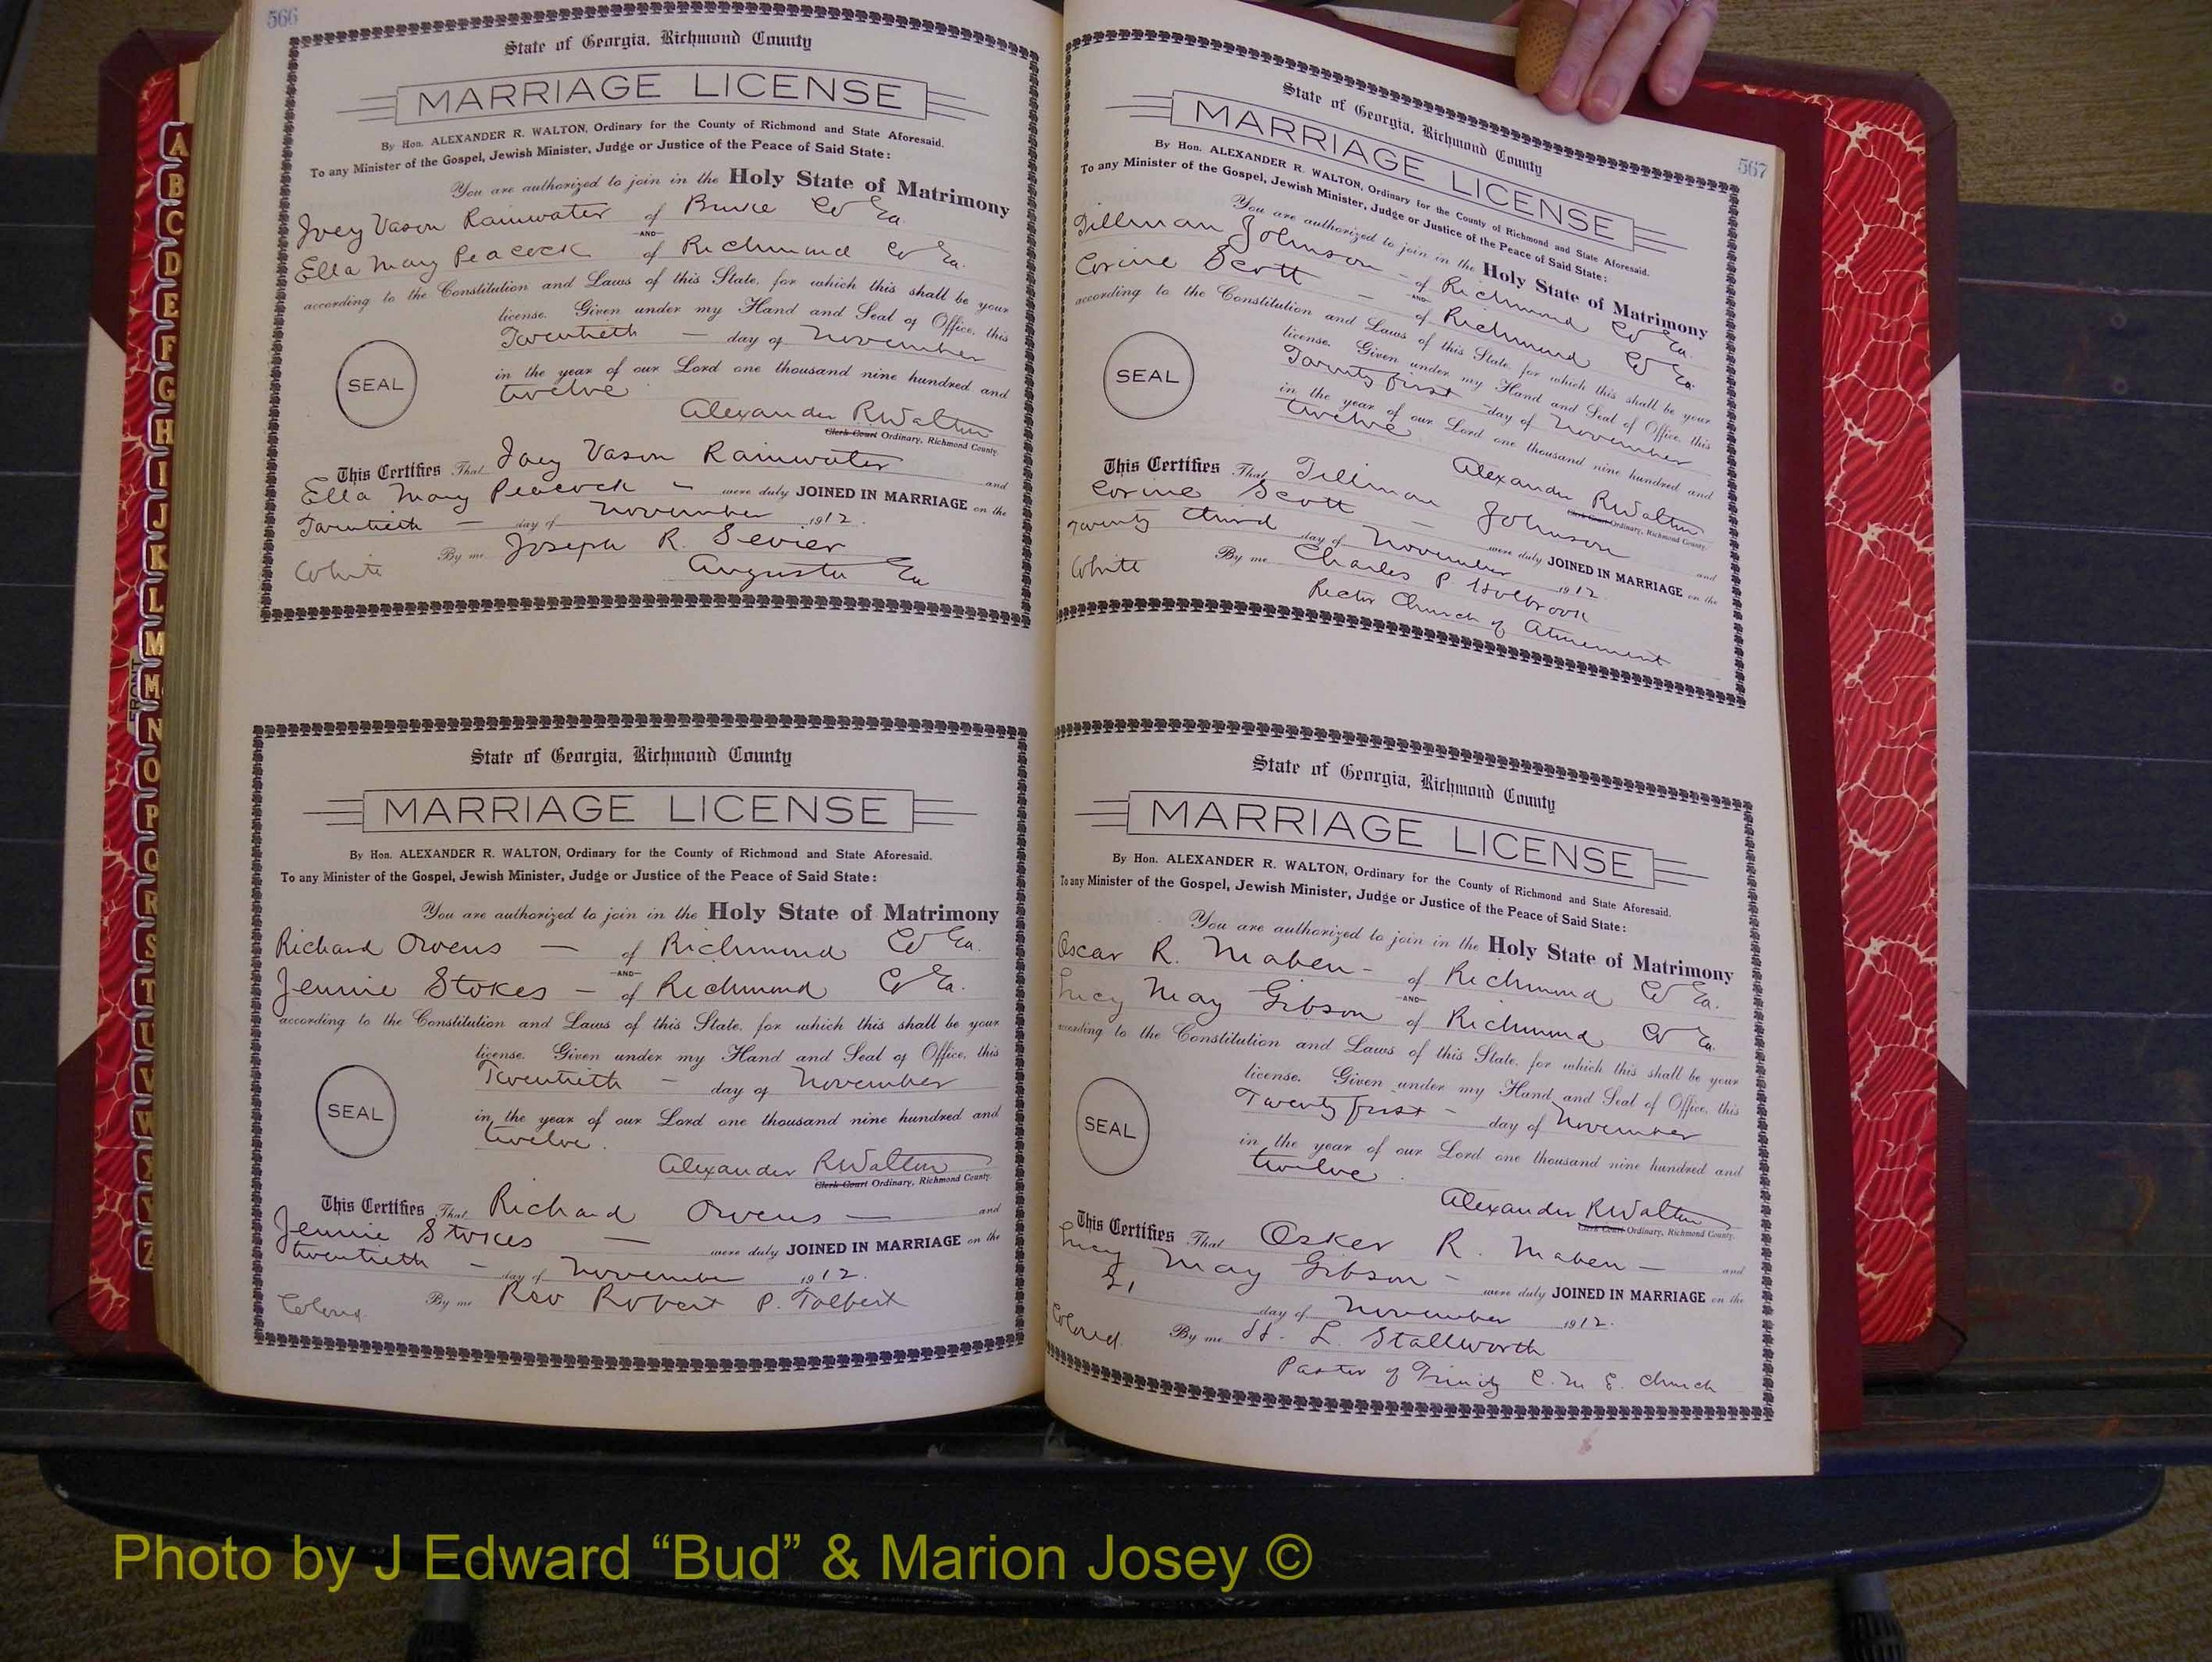 566
State of Georgia, Richmond County
MARRIAGE LICENSE
By Hon. ALEXANDER R. WALTON, Ordinary for the County of Richmond and State Aforesaid.
To any Minister of the Gospel, Jewish Minister, Judge or Justice of the Peace of Said State:
You are authorized to join in the Holy State of Matrimony
Joey Vason Rainwater of Co Ga.
AND
Ella May Peacock of Richmond Co Ga.
according to the Constitution and Laws of this State, for which this shall be your
license. Given under my Hand and Seal of Office, this
Twentieth — day of November
in the year of our Lord one thousand nine hundred and
twelve
SEAL
Alexander R Walton
Clerk Court Ordinary, Richmond County.
This Certifies That Joey Vason Rainwater and
Ella May Peacock - were duly JOINED IN MARRIAGE on the
Twentieth — day of November 1912.
By me Joseph R. Sevier
White Augusta Ga
State of Georgia, Richmond County
MARRIAGE LICENSE
By Hon. ALEXANDER R. WALTON, Ordinary for the County of Richmond and State Aforesaid.
To any Minister of the Gospel, Jewish Minister, Judge or Justice of the Peace of Said State:
You are authorized to join in the Holy State of Matrimony
Richard Owens — of Richmond Co Ga.
AND
Jennie Stokes — of Richmond Co Ga.
according to the Constitution and Laws of this State, for which this shall be your
license. Given under my Hand and Seal of Office, this
Twentieth — day of November
in the year of our Lord one thousand nine hundred and
twelve.
SEAL
Alexander R Walton
Clerk Court Ordinary, Richmond County.
This Certifies That Richard Owens — and
Jennie Stokes — were duly JOINED IN MARRIAGE on the
twentieth — day of November 1912.
Colored By me Rev Robert P. Tolbert
567
State of Georgia, Richmond County
MARRIAGE LICENSE
By Hon. ALEXANDER R. WALTON, Ordinary for the County of Richmond and State Aforesaid.
To any Minister of the Gospel, Jewish Minister, Judge or Justice of the Peace of Said State:
You are authorized to join in the Holy State of Matrimony
Tillman Johnson - of Richmond Co Ga.
AND
Corine Scott — of Richmond Co Ga.
according to the Constitution and Laws of this State, for which this shall be your
license. Given under my Hand and Seal of Office, this
Twenty first - day of November
in the year of our Lord one thousand nine hundred and
twelve
SEAL
Alexander R Walton
Clerk Court Ordinary, Richmond County.
This Certifies That Tillman Johnson and
Corine Scott — were duly JOINED IN MARRIAGE on the
Twenty third day of November 1912.
White By me Charles P. Holbrook
Rector Church of Atonement
State of Georgia, Richmond County
MARRIAGE LICENSE
By Hon. ALEXANDER R. WALTON, Ordinary for the County of Richmond and State Aforesaid.
To any Minister of the Gospel, Jewish Minister, Judge or Justice of the Peace of Said State:
You are authorized to join in the Holy State of Matrimony
Oscar R. Maben - of Richmond Co Ga.
AND
Lucy May Gibson of Richmond Co Ga.
according to the Constitution and Laws of this State, for which this shall be your
license. Given under my Hand and Seal of Office, this
Twenty first - day of November
in the year of our Lord one thousand nine hundred and
twelve
SEAL
Alexander R Walton
Clerk Court Ordinary, Richmond County.
This Certifies That Osker R. Maben — and
Lucy May Gibson - were duly JOINED IN MARRIAGE on the
21 day of November 1912.
Colored. By me L. Stallworth
Pastor of Trinity C. M E. Church
A
B
C
D
E
F
G
H
I
J
K
L
M
M
N
O
P
Q
R
S
T
U
V
W
X
Y
Z
FRONT
Photo by J Edward “Bud” & Marion Josey ©